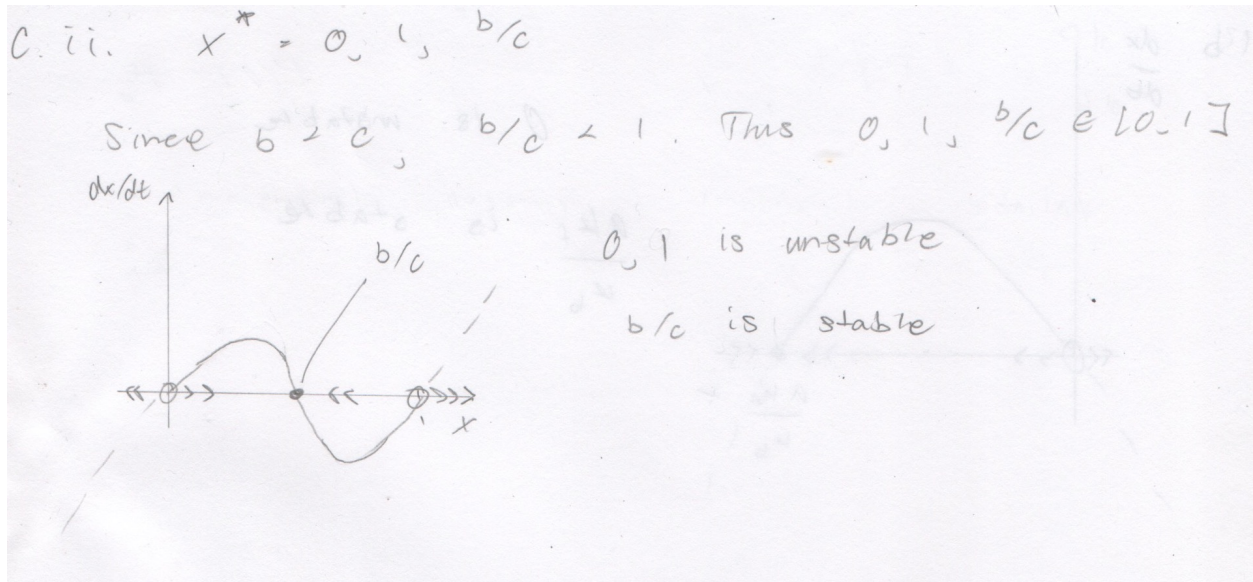 C. ii. x* = 0, 1, b/c
Since b < c, b/c < 1. Thus 0, 1, b/c ∈ [0, 1]
dx/dt
b/c
0, 1 is unstable
b/c is stable
1
x